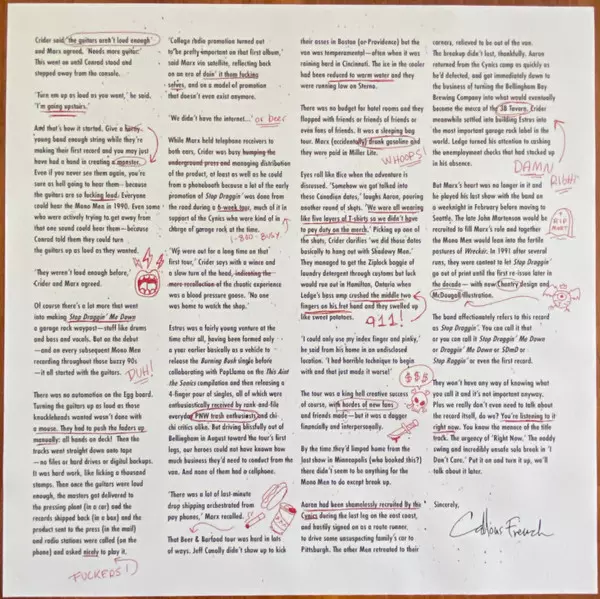 Crider said 'the guitars aren't loud enough'
and Marx agreed. 'Needs more guitar.'
This went on until Conrad stood and
stepped away from the console.
'Turn em up as loud as you want,' he said.
'I'm going upstairs.'
And that's how it started. Give a
young band enough string while they're
making their first record and you may just
have had a hand in creating a monster.
Even if you never see them again, you're
sure as hell going to hear them – because
the guitars are so fucking loud. Everyone
could hear the Mono Men in 1990. Even some
who were actively trying to get away from
that one sound could hear them – because
Conrad told them they could turn
the guitars up as loud as they wanted.
'They weren't loud enough before,'
Crider and Marx agreed.
Of course there's a lot more that went
into making Stop Draggin' Me Down
a garage rock waypost – stuff like drums
and bass and vocals. But on the debut
– and on every subsequent Mono Men
recording throughout those buzzy 90s
– it all started with the guitars.
DUH!
There was no automation on the Egg board.
Turning the guitars up as loud as those
knuckleheads wanted wasn't done with
a mouse. They had to push the faders up
manually: all hands on deck! Then the
tracks went straight down onto tape
– no files or hard drives or digital backups.
It was hard work, like licking a thousand
stamps. Then once the guitars were loud
enough, the masters got delivered to
the pressing plant (in a car) and the
records shipped back (in a box) and the
product sent to the press (in the mail)
and radio stations were called (on the
phone) and asked nicely to play it.
FUCKERS!)
'College radio promotion turned out
to be pretty important on that first album,'
said Marx via satellite, reflecting back
on an era of doin' it them fucking
selves, and on a model of promotion
that doesn't even exist anymore.
'We didn't have the internet...' or beer
While Marx held telephone receivers to
both ears, Crider was busy humping the
underground press and managing distribution
of the product, or at least as he could
from a phonebooth because a lot of the early
promotion of Stop Draggin' was done from
the road during a 6-week tour, much of it in
support of the Cynics who were kind of in
charge of garage rock at the time.
1-800-BUSY
'We were out for a long time on that
first tour,' Crider says with a wince and
a slow turn of the head, indicating the
mere recollection of the chaotic experience
was a blood pressure goose. 'No one
was home to watch the shop.'
Estrus was a fairly young venture at the
time after all, having been formed only
a year earlier basically as a vehicle to
release the Burning Bush single before
collaborating with PopLlama on the This Aint
the Sonics compilation and then releasing a
4-finger pour of singles, all of which were
enthusiastically received by rank-and-file
everyday PNW trash enthusiasts and chi-
chi critics alike. But driving blissfully out of
Bellingham in August toward the tour's first
legs, our heroes could not have known how
much business they'd need to conduct from the
van. And none of them had a cellphone.
'There was a lot of last-minute
drop shipping orchestrated from
pay phones,' Marx recalled.
That Beer & Barfood tour was hard in lots
of ways. Jeff Conolly didn't show up to kick
their asses in Boston (or Providence) but the
van was temperamental – often when it was
raining hard in Cincinnati. The ice in the cooler
had been reduced to warm water and they
were running low on Sterno.
There was no budget for hotel rooms and they
flopped with friends or friends of friends or
even fans of friends. It was a sleeping bag
tour. Marx (accidentally) drank gasoline and
they were paid in Miller Lite.
WHOOPS!
Eyes roll like dice when the adventure is
discussed. 'Somehow we got talked into
these Canadian dates,' laughs Aaron, pouring
another round of skats. 'We were all wearing
like five layers of T-shirts so we didn't have
to pay duty on the merch.' Picking up one
of the skats, Crider clarifies 'we did those dates
basically to hang out with Shadowy Men.'
They managed to get the Ziplock baggie of
laundry detergent through customs but luck
would run out in Hamilton, Ontario when
Ledge's bass amp crushed the middle two
fingers on his fret hand and they swelled up
like sweet potatoes.
911!
'I could only use my index finger and pinky,'
he said from his home in an undisclosed
location. 'I had horrible technique to begin
with and that just made it worse!'
$$$
The tour was a king hell creative success
of course, with hordes of new fans
and friends made – but it was a dagger
financially and interpersonally.
By the time they'd limped home from the
last show in Minneapolis (who booked this?)
there didn't seem to be anything for the
Mono Men to do except break up.
Aaron had been shamelessly recruited By the
Cynics during the last leg on the east coast,
and hastily signed on as a route runner,
to drive some unsuspecting family's car to
Pittsburgh. The other Men retreated to their
corners, relieved to be out of the van.
The breakup didn't last, thankfully. Aaron
returned from the Cynics camp as quickly as
he'd defected, and got immediately down to
the business of turning the Bellingham Bay
Brewing Company into what would eventually
become the mecca of the 3B Tavern. Crider
meanwhile settled into building Estrus into
the most important garage rock label in the
world. Ledge turned his attention to cashing
the unemployment checks that had stacked up
in his absence.
DAMN RIGHT
But Marx's heart was no longer in it and
he played his last show with the band on
a weeknight in February before moving to
Seattle. The late John Mortenson would be
recruited to fill Marx's role and together
the Mono Men would lean into the fertile
pastures of Wrecker. In 1991 after several
runs, they were content to let Stop Draggin'
go out of print until the first re-issue later in
the decade – with new Chantry design and
McDougall illustration.
RIP
The band affectionately refers to this record
as Stop Draggin'. You can call it that
or you can call it Stop Draggin' Me Down or
Draggin' Me Down or SDmD or Stop
Raggin' or even the first record.
They won't have any way of knowing what
you call it and it's not important anyway.
Plus we really don't even need to talk about
the record itself, do we? You're listening to it
right now. You know the menace of the title
track. The urgency of 'Right Now.' The noddy
swing and incredibly unsafe solo break in 'I
Don't Care.' Put it on and turn it up, we'll
talk about it later.
Sincerely,